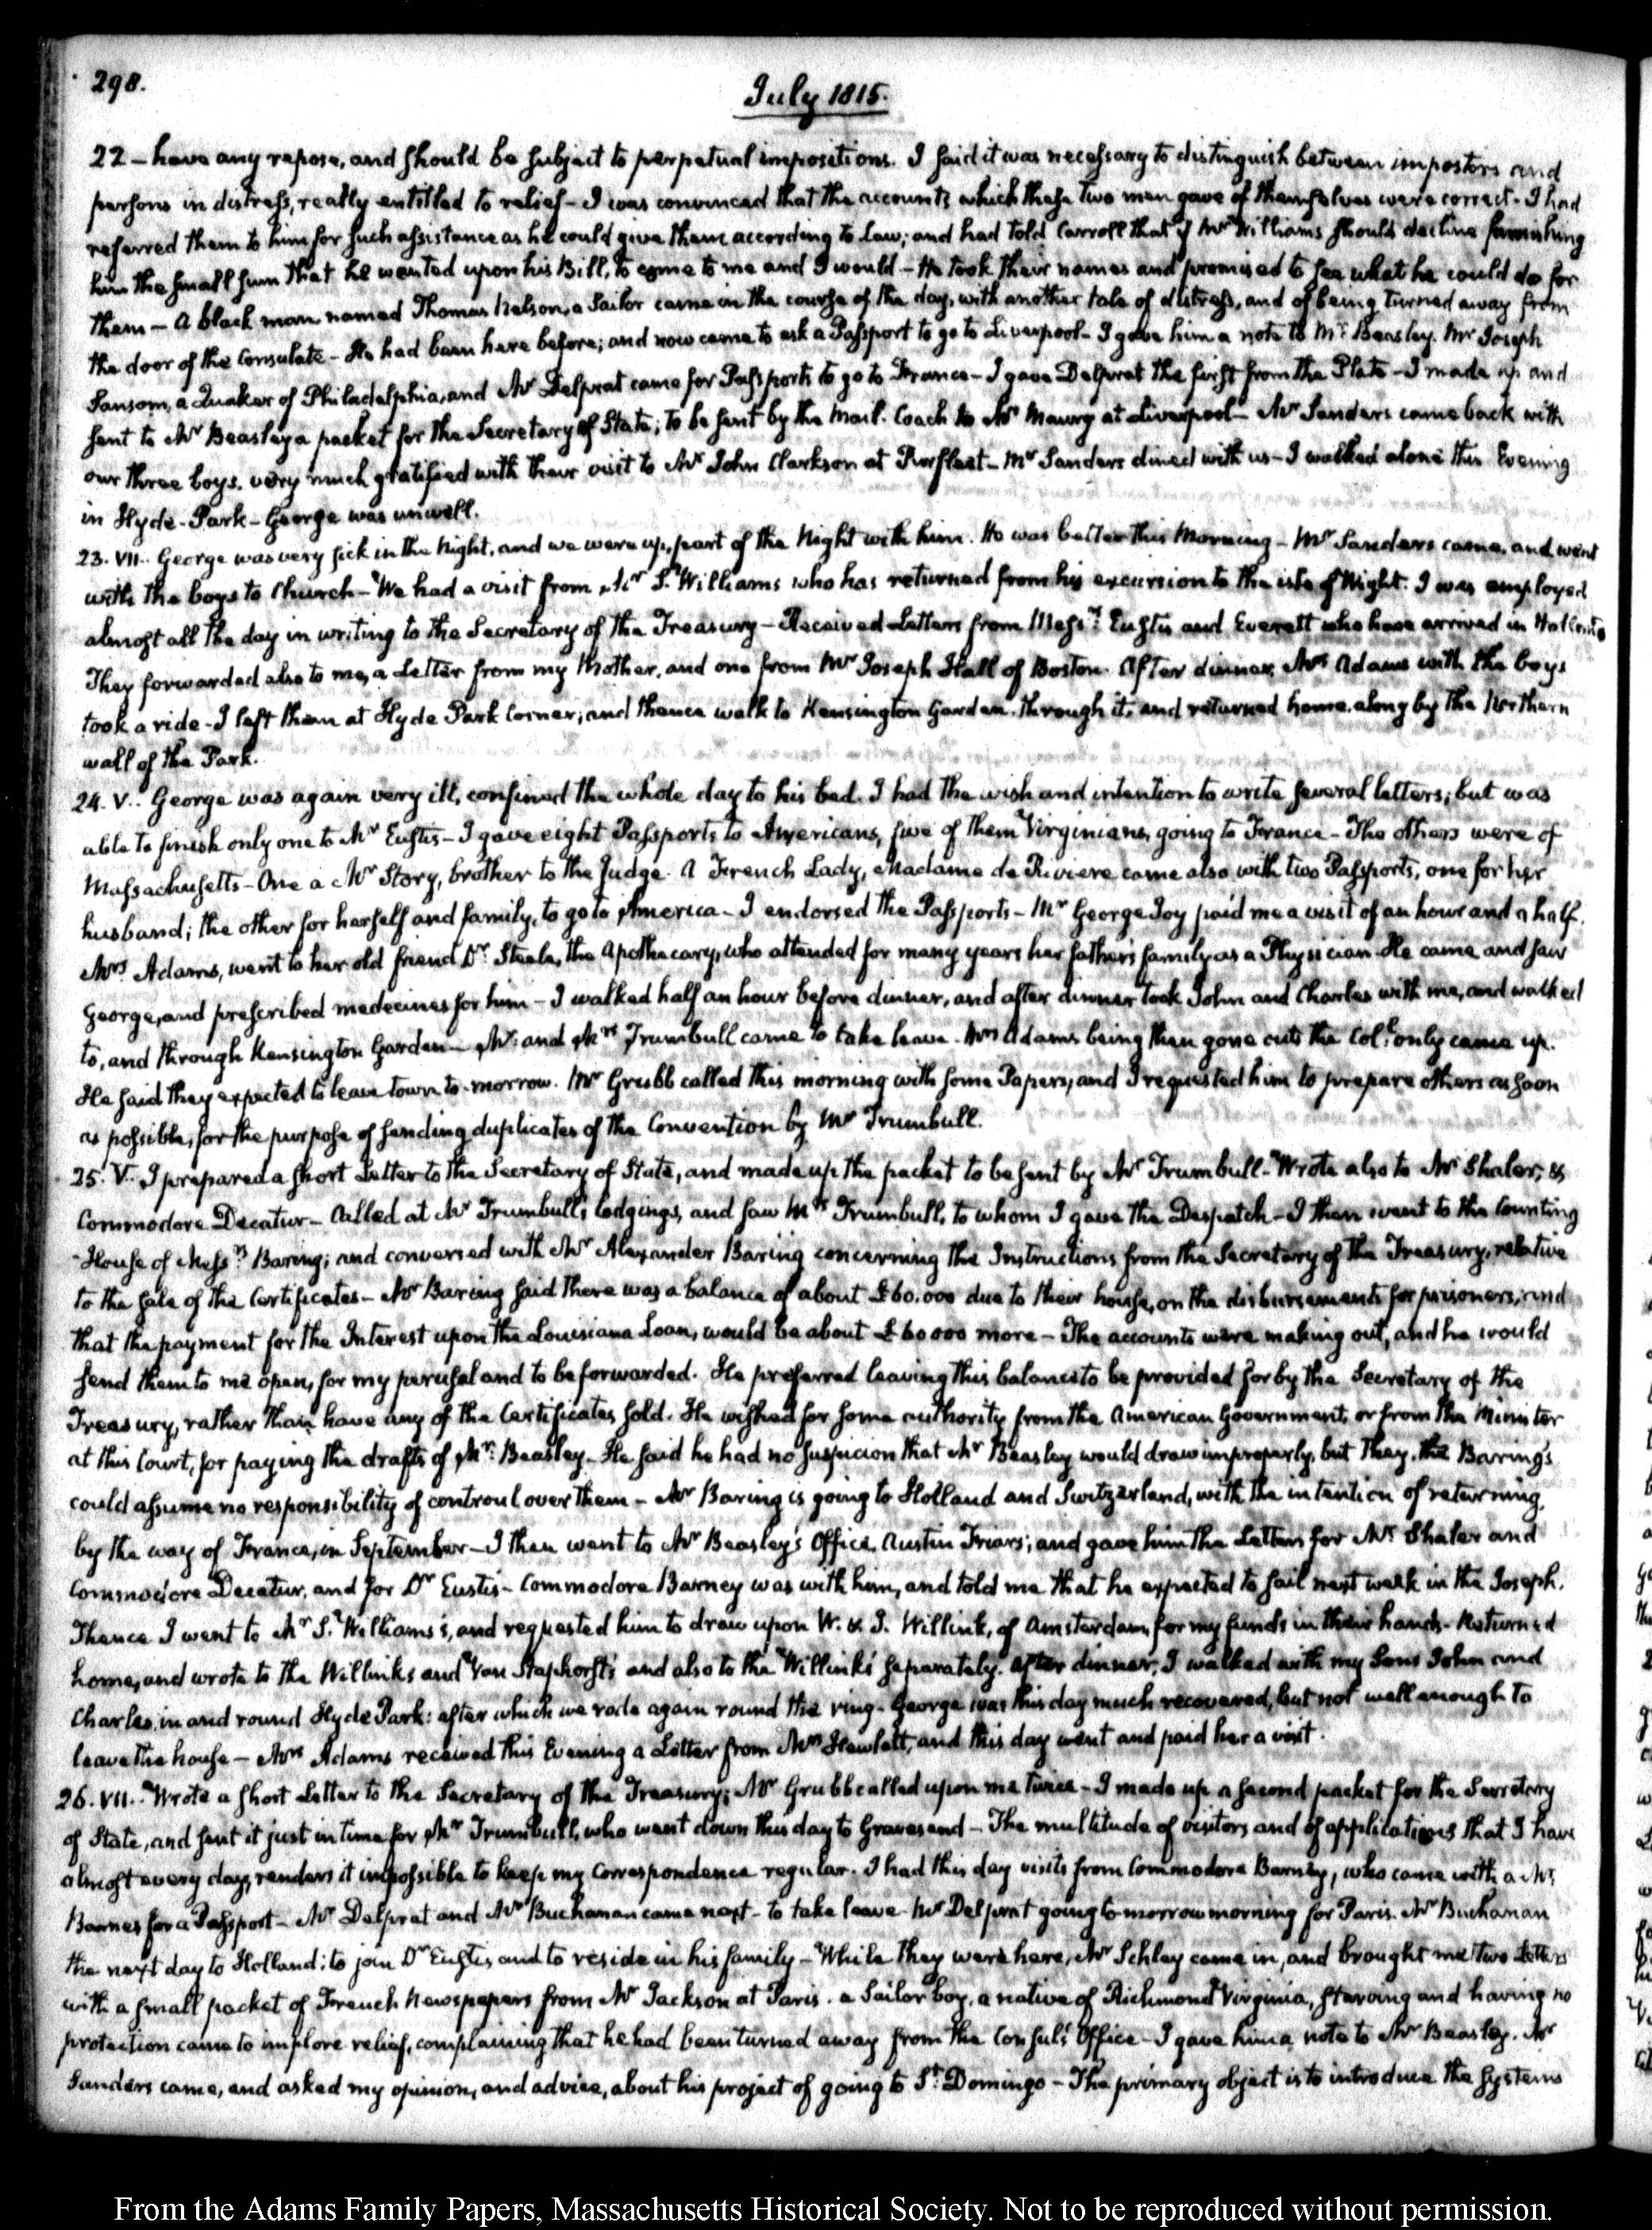 298.
July 1815.
22 – have any repose, and should be subject to perpetual impositions. I said it was necessary to distinguish between impostors and
persons in distress, really entitled to relief – I was convinced that the accounts which these two men gave of themselves were correct – I had
referred them to him for such assistance as he could give them according to Law; and had told Carroll that if Mr Williams should decline furnishing
him the small sum that he wanted upon his Bill, to come to me and I would – He took their names and promised to see what he could do for
them – A black man named Thomas Nelson, a Sailor came in the course of the day, with another tale of distress, and of being turned away from
the door of the Consulate – He had been here before; and now came to ask a Passport to go to Liverpool – I gave him a note to Mr Beasley. Mr Joseph
Sansom, a Quaker of Philadelphia, and Mr Delprat came for Passports to go to France – I gave Delprat the first from the Plate – I made up and
sent to Mr Beasley a packet for the Secretary of State; to be sent by the Mail-Coach to Mr Maury at Liverpool – Mr Sanders came back with
our three boys, very much gratified with their visit to Mr John Clarkson at Purfleet – Mr Sanders dined with us – I walked alone this Evening
in Hyde-Park – George was unwell.
23. VII.. George was very sick in the Night, and we were up, part of the Night with him. He was better this Morning – Mr Sanders came, and went
with the boys to Church – We had a visit from Mr S. Williams who has returned from his excursion to the isle of Wight. I was employed
almost all the day in writing to the Secretary of the Treasury – Received Letters from Messrs Eustis and Everett who have arrived in Holland
They forwarded also to me, a Letter from my Mother, and one from Mr Joseph Hall of Boston. After dinner, Mrs Adams with the boys
took a ride – I left them at Hyde Park Corner, and thence walk to Kensington Garden, through it, and returned home, along by the Northern
wall of the Park.
24. V.. George was again very ill, confined the whole day to his bed. I had the wish and intention to write several letters; but was
able to finish only one to Mr Eustis – I gave eight Passports to Americans, five of them Virginians, going to France – The others were of
Massachusetts – One a Mr Story, brother to the Judge. A French Lady, Madame de Riviere came also with two Passports, one for her
husband; the other for herself and family, to go to America – I endorsed the Passports – Mr George Joy paid me a visit of an hour and a half.
Mrs Adams, went to her old friend Dr Steele, the Apothecary, who attended for many years her father's family as a Physician – He came and saw
George, and prescribed medecines for him – I walked half an hour before dinner, and after dinner took John and Charles with me, and walked
to, and through Kensington Garden – Mr and Mrs Trumbull came to take leave – Mrs Adams being then gone out, the Coll. only came up.
He said they expected to leave town to-morrow. Mr Grubb called this morning with some Papers, and I requested him to prepare others as soon
as possible, for the purpose of sending duplicates of the Convention by Mr Trumbull.
25. V. I prepared a short Letter to the Secretary of State, and made up the packet to be sent by Mr Trumbull – Wrote also to Mr Shaler, &
Commodore Decatur – Called at Mr Trumbull's lodgings, and saw Mrs Trumbull, to whom I gave the Despatch – I then went to the Counting
-House of Messrs Baring; and conversed with Mr Alexander Baring concerning the Instructions from the Secretary of the Treasury, relative
to the sale of the Certificates – Mr Baring said there was a balance of about £60.000 due to their house, on the disbursements for prisoners, and
that the payment for the Interest upon the Louisiana Loan, would be about £60000 more – The accounts were making out, and he would
send them to me open, for my perusal and to be forwarded. He preferred leaving this balance to be provided for by the Secretary of the
Treasury, rather than have any of the Certificates sold. He wished for some authority from the American Government, or from the Minister
at this Court, for paying the drafts of Mr Beasley – He said he had no suspicion that Mr Beasley would draw improperly, but they, the Barings
could assume no responsibility of controul over them – Mr Baring is going to Holland and Switzerland, with the intention of returning,
by the way of France, in September – I then went to Mr Beasley's Office, Austin Friars; and gave him the Letters for Mr Shaler and
Commodore Decatur, and for Dr Eustis – Commodore Barney was with him, and told me that he expected to sail next week in the Joseph.
Thence I went to Mr S. Williams's, and requested him to draw upon W. & J. Willink, of Amsterdam, for my funds in their hands. Returned
home, and wrote to the Willinks and Van Staphorst's and also to the Willinks' separately. After dinner, I walked with my Sons John and
Charles, in and round Hyde Park: after which we rode again round the ring – George was this day much recovered, but not well enough to
leave the house – Mrs Adams received this Evening a Letter from Mrs Hewlett, and this day went and paid her a visit.
26. VII.. Wrote a short Letter to the Secretary of the Treasury; Mr Grubb called upon me twice – I made up a second packet for the Secretary
of State, and sent it just in time for Mr Trumbull, who went down this day to Gravesend – The multitude of visitors and of applications that I have
almost every day, renders it impossible to keep my Correspondence regular. I had this day visits from Commodore Barney, who came with a Mr
Barnes for a Passport – Mr Delprat and Mr Buchanan came next – to take leave Mr Delprat going to-morrow morning for Paris. Mr Buchanan
the next day to Holland; to join Dr Eustis, and to reside in his family – While they were here, Mr Schley came in, and brought me two Letters
with a small packet of French Newspapers from Mr Jackson at Paris. a Sailor boy, a native of Richmond Virginia, starving and having no
protection came to implore relief, complaining that he had been turned away from the Consul's Office – I gave him a note to Mr Beasley. Mr
Sanders came, and asked my opinion, and advice, about his project of going to St Domingo – The primary object is to introduce the Systems
From the Adams Family Papers, Massachusetts Historical Society. Not to be reproduced without permission.